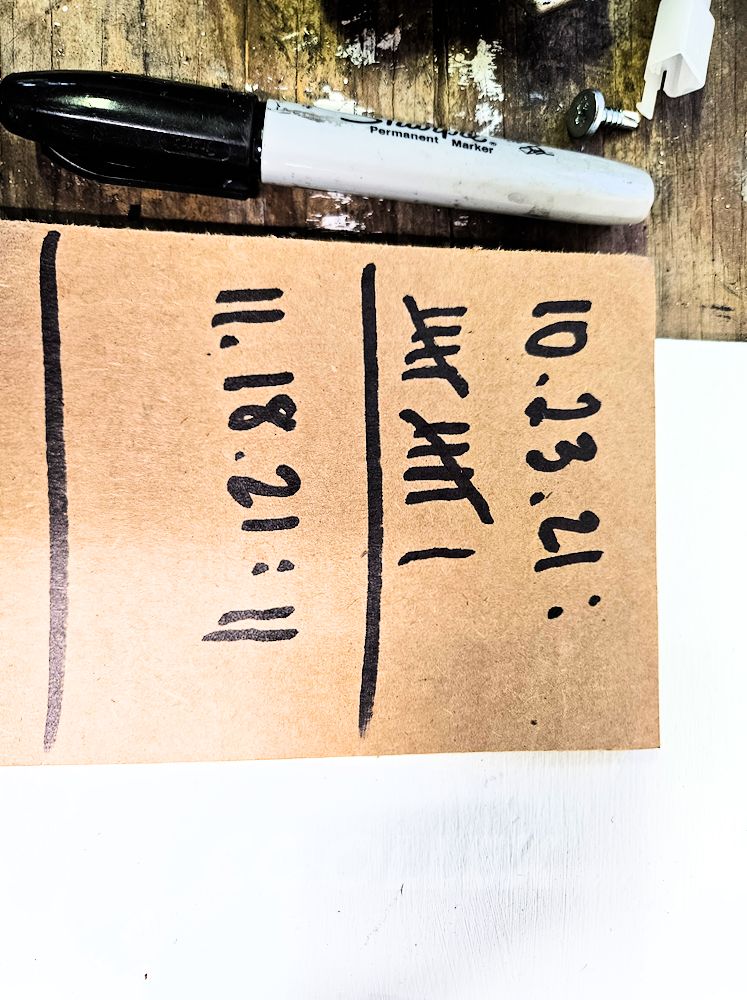 Sharpie.
Permanent Marker
10.23.21:
卌 卌 |
11.18.21: ||